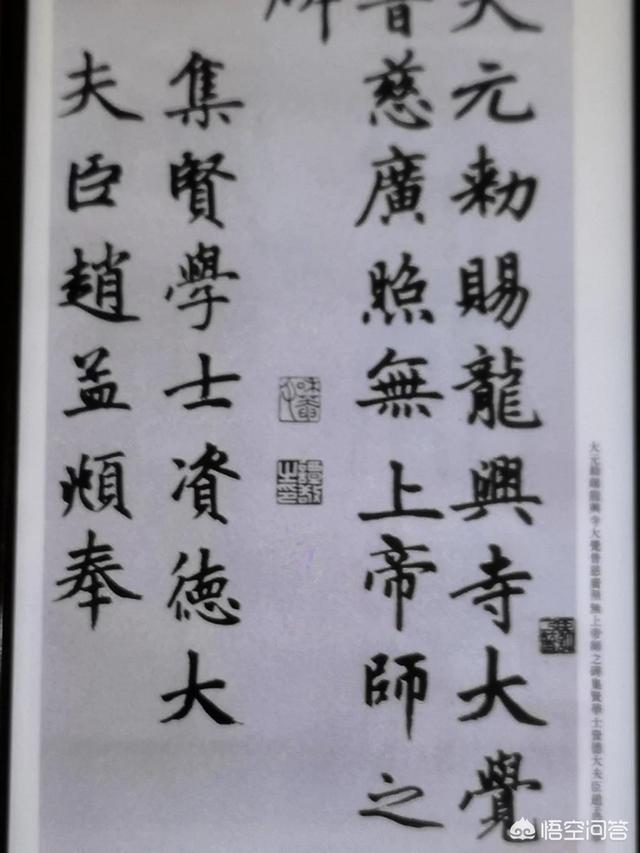 大元勅賜龍興寺大覺
普慈廣照無上帝師之
碑
集賢學士資德大
夫臣趙孟頫奉
大元敕賜龍興寺大覺普慈廣照無上帝師之碑集賢學士資德大夫臣趙
悟空问答